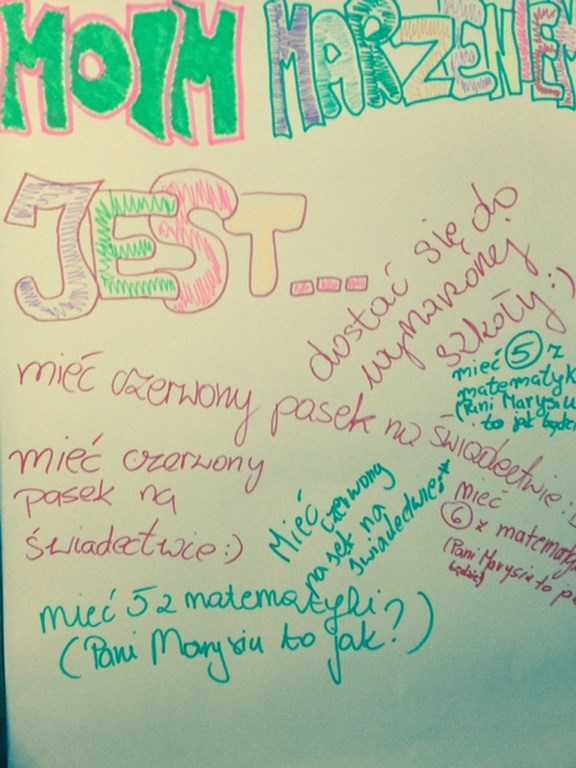 MOIM MARZENIEM
JEST...
dostać się do
wymarzonej
szkoły :)
mieć 5 z
matematyk
(Pani Marysiu
to jak będzi
mieć czerwony pasek na świadectwie :
mieć czerwony
pasek na
świadectwie :)
Mieć
czerwony
pasek na
świadectwie :*
mieć
6 z matematy
(Pani Marysiu to
będzie)
mieć 5 z matematyki?
(Pani Marysiu to jak?)